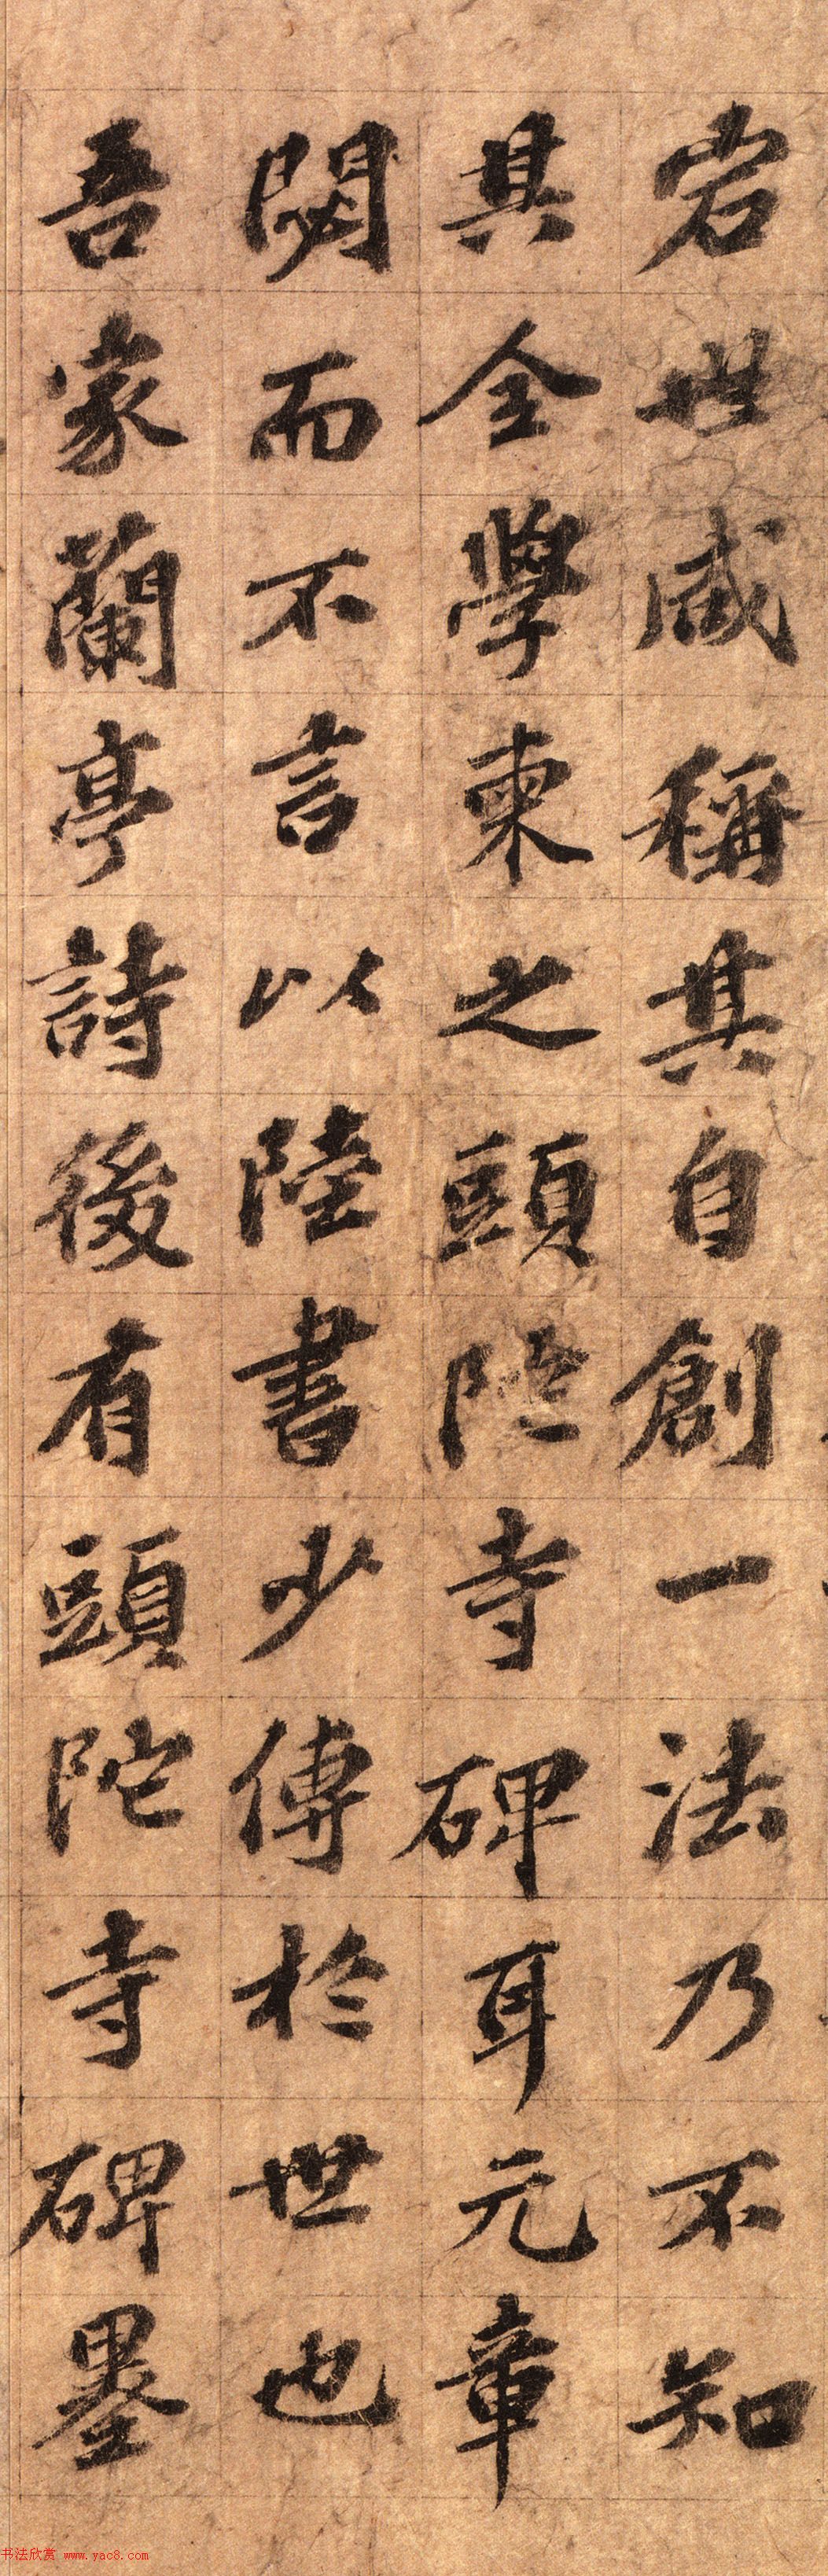 宕世咸稱其自創一法乃不知
其全學柬之頭陀寺碑耳元章
閟而不言以陸書少傳於世也
吾家蘭亭詩後有頭陀寺碑墨
书法欣赏 www.yac8.com